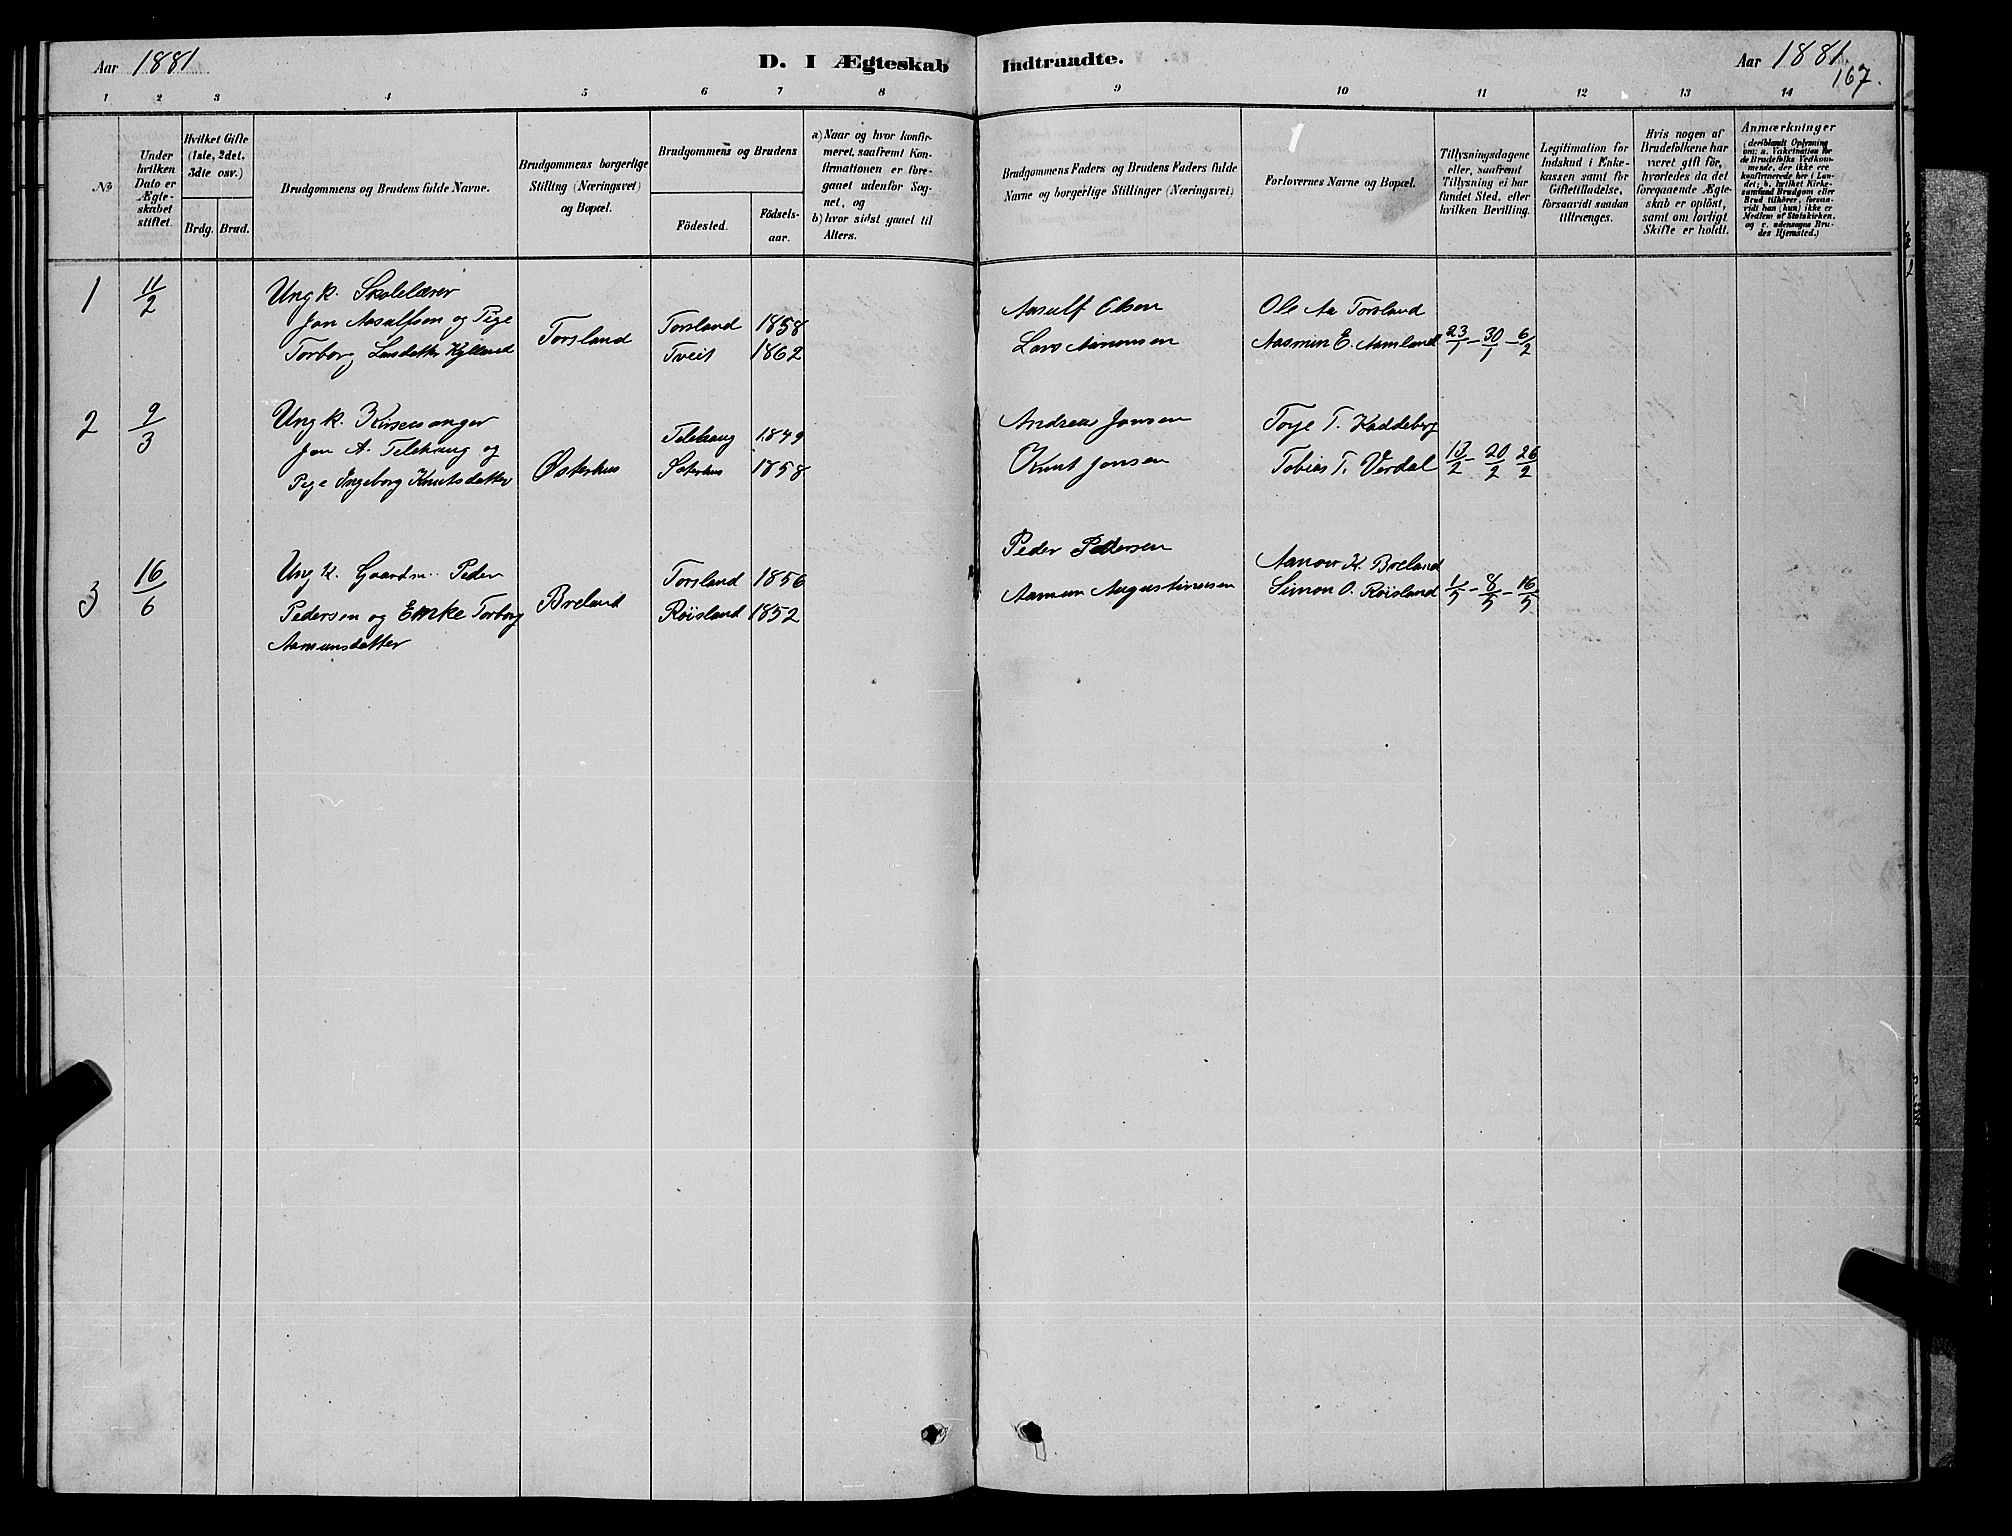 Aar 1881
D. I Ægteskab Indtraadte.
Aar 1881
167.
1 2 3 4 5 6 7 8 9 10 11 12 13 14
№
Under
hvilken
Dato er
Ægte-
skabet
stiftet.
Hvilket Gifte
(1ste, 2det,
3die osv.)
Brdg. Brud.
Brudgommens og Brudens fulde Navne.
Brudgommens borgerlige
Stilling (Næringsvei)
og Bopæl.
Brudgommens og Brudens
Födested.
Födsels-
aar.
a) Naar og hvor konfir-
meret, saafremt Kon-
firmationen er fore-
gaaet udenfor Sog-
net, og
b) hvor sidst gaaet til
Alters.
Brudgommens Faders og Brudens Faders fulde
Navne og borgerlige Stillinger (Næringsvei)
Forlovernes Navne og Bopæl.
Tillysningsdagene
eller, saafremt
Tillysning ei har
fundet Sted, efter
hvilken Bevilling.
Legitimation for
Indskud i Enke-
kassen samt for
Giftetilladelse,
forsaavidt saadan
tiltrænges.
Hvis nogen af
Brudefolkene har
været gift för,
hvorledes da det
foregaaende Ægte-
skab er oplöst,
samt om lovligt
Skifte er holdt.
Anmærkninger
(deriblandt Oplysning
om: a. Vakcination for
de Brudefolks Vedkom-
mende, der ikke ere
konfirmerede her i Lan-
det; b. hvilket Kirke-
samfund Brudgom eller
Brud tilhører, forsaa-
vidt han (hun) ikke er
Medlem af Statskirken,
og c. udensogns Bru-
des Hjemsted.)
1 11/2
Ungk. Skolelærer
Jon Aasulfsen og Pige
Torborg Larsdatter Kylland
Torsland
Torsland 1858
Tveit 1862
Aasulf Olsen
Lars Aanonsen
Ole Aa Torsland
Aasmun E. Aamland 23/1 - 30/1 - 6/2
2 9/3
Ungk. Kirkesanger
Jon A. Telehaug og
Pige Ingeborg Knutsdatter
Østerhus
Telehaug 1849
Østerhus 1858
Andreas Jonsen
Knut Jonsen
Torje T. Kaddeberg
Tobias T. Verdal 13/2 - 20/2 26/2
3 16/6
Ungk. Gaardm. Peder
Pedersen og Enke Torborg
Aamunsdatter
Breland
Torsland 1856
Røisland 1852
Peder Pedersen
Aamun Augustinussen
Aanon K. Breland
Simon O. Røisland 1/5 - 8/5 - 16/5